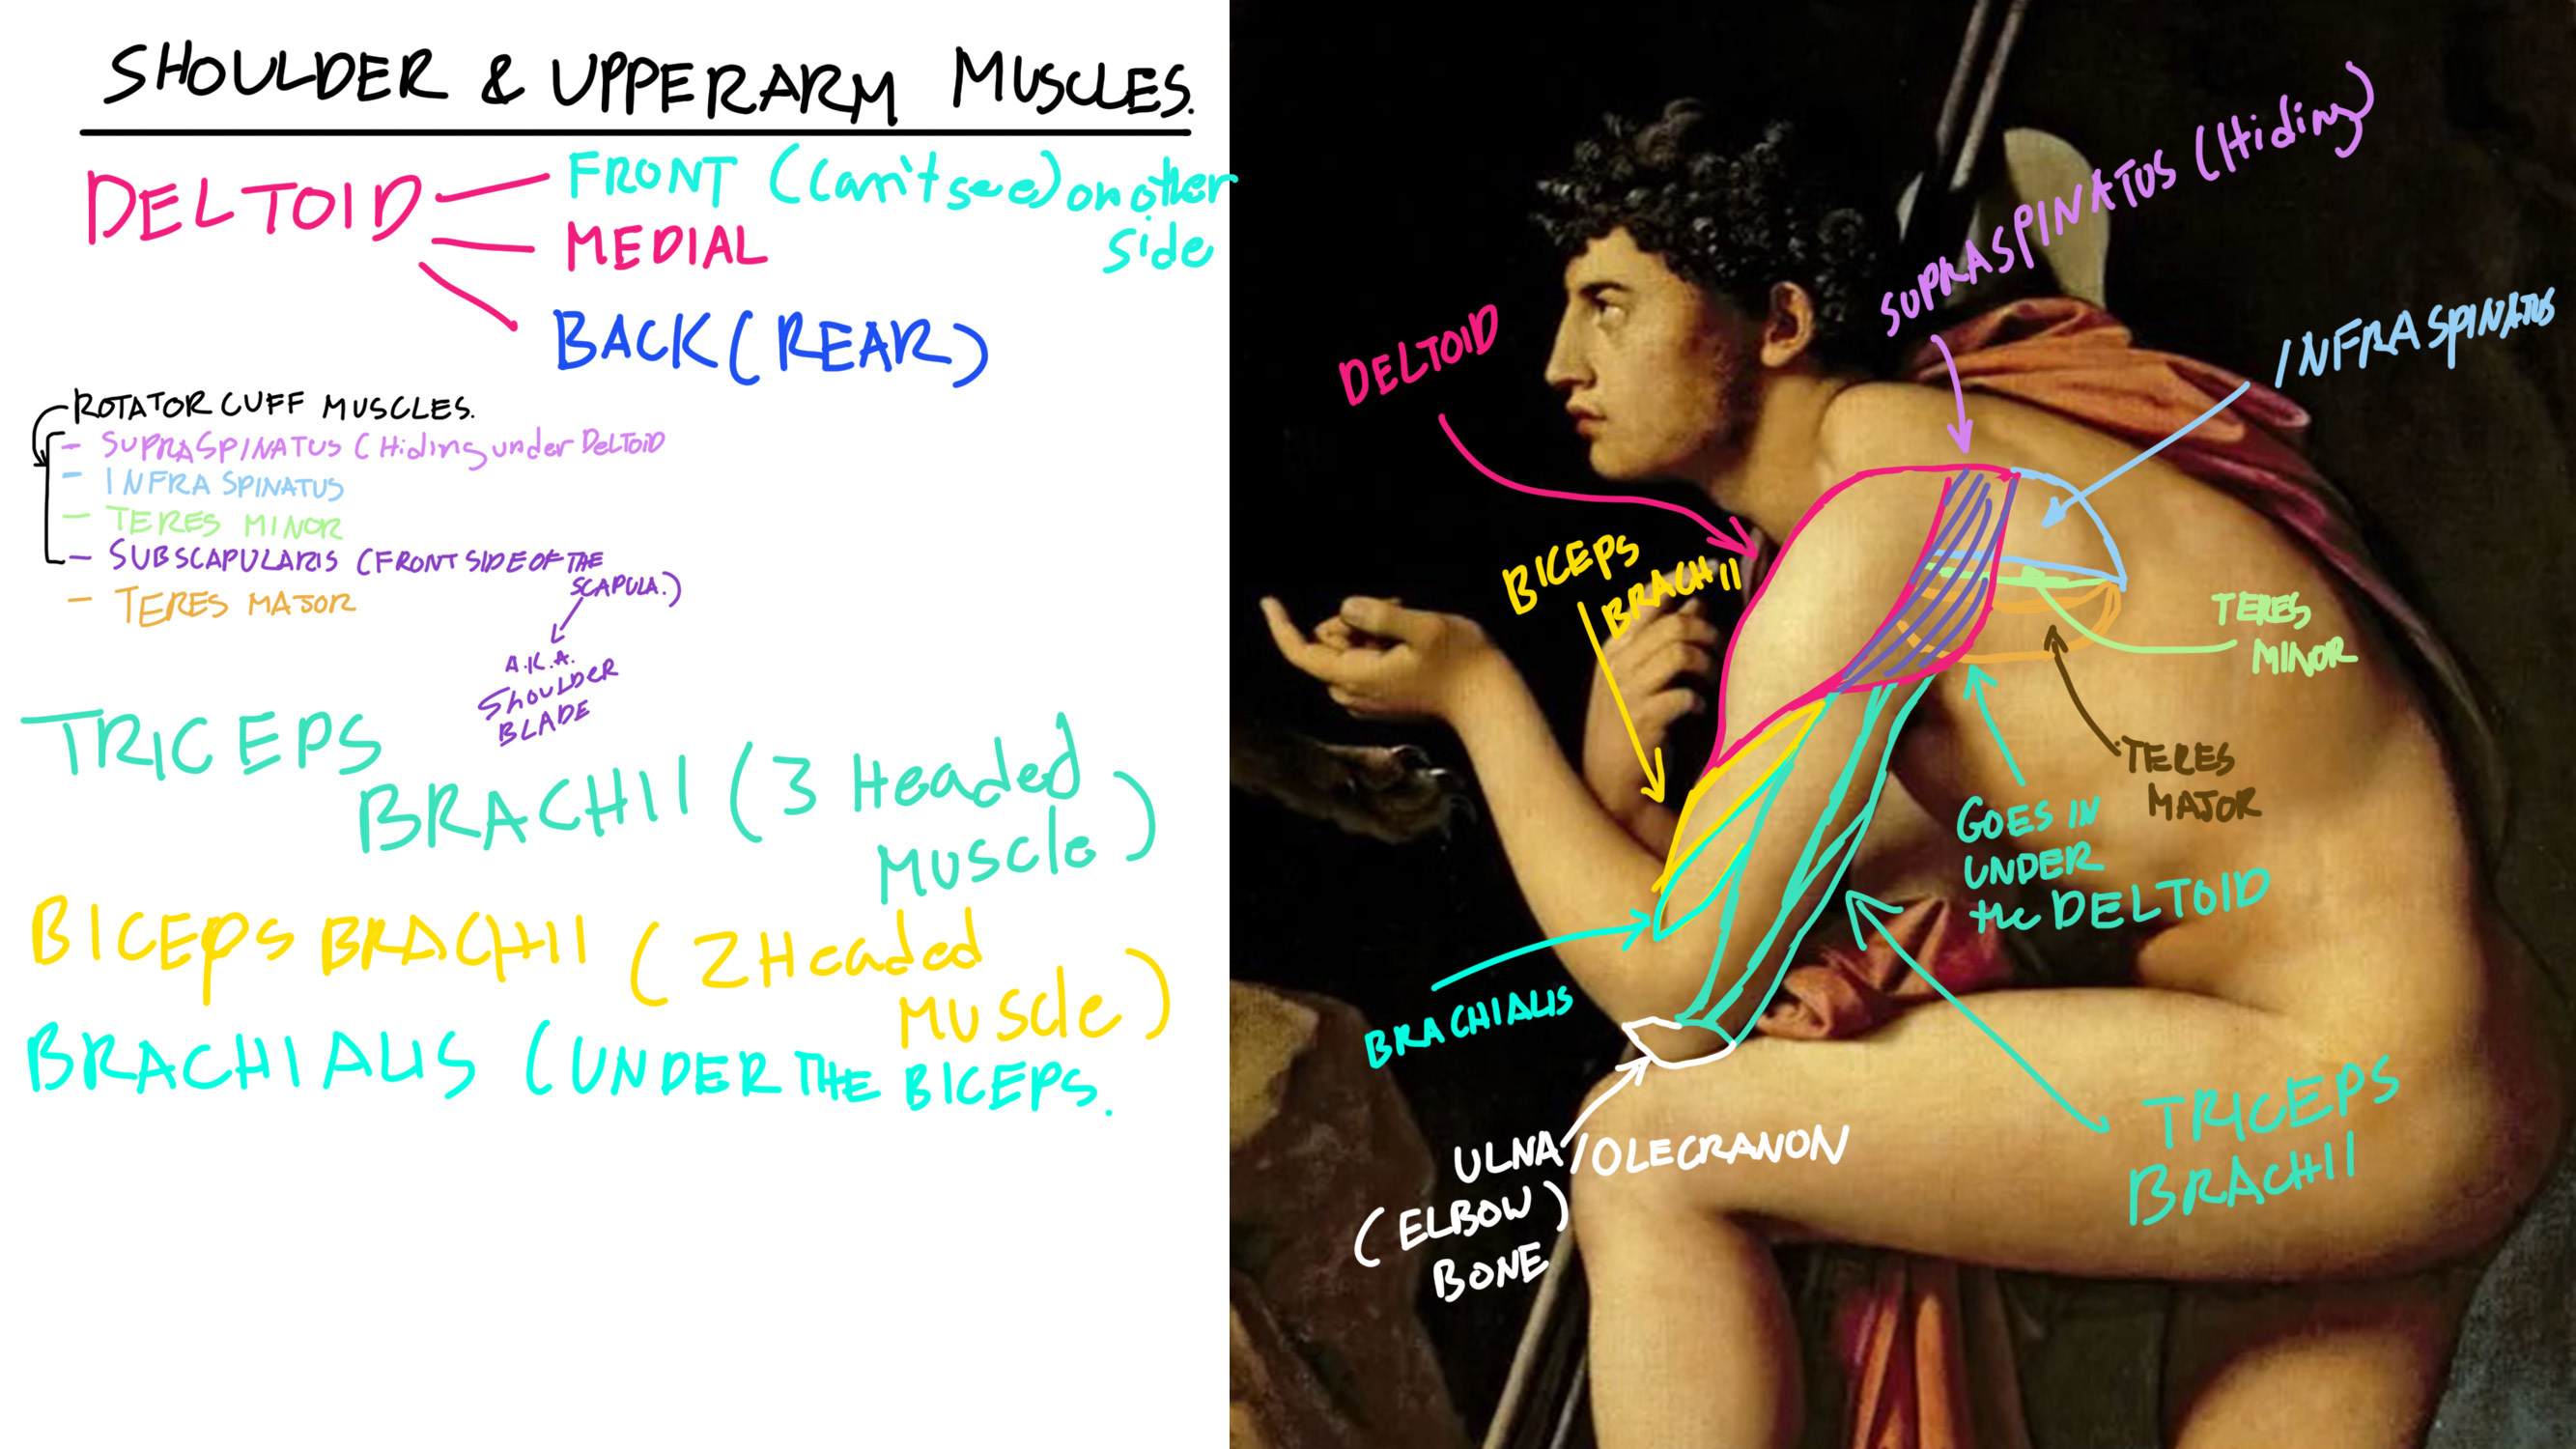 SHOULDER & UPPERARM MUSCLES.
DELTOID
FRONT (Can't see) on other
side
MEDIAL
BACK (REAR)
ROTATOR CUFF MUSCLES.
- SUPRASPINATUS (Hiding under DELTOID
- INFRA SPINATUS
- TERES MINOR
- SUBSCAPULARIS (FRONT SIDE OF THE
SCAPULA.)
A.K.A.
SHOULDER
BLADE
- TERES MAJOR
TRICEPS
BRACHII (3 Headed
MUSCLE)
BICEPS BRACHII (2 Headed
MUSCLE)
BRACHIALIS (UNDER THE BICEPS.
SUPRASPINATUS (Hiding)
INFRASPINATUS
DELTOID
BICEPS
BRACHII
TERES
MINOR
TERES
MAJOR
GOES IN
UNDER
the DELTOID
BRACHIALIS
ULNA/OLECRANON
(ELBOW)
BONE
TRICEPS
BRACHII